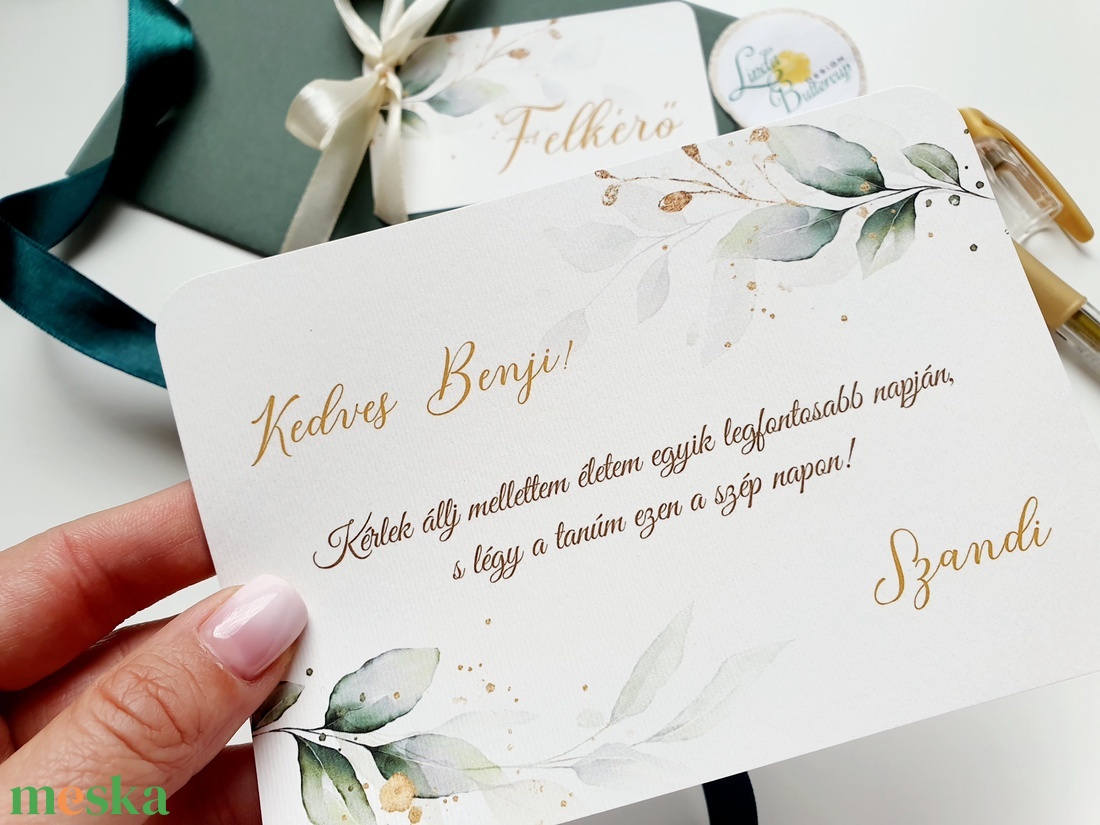 Felkérő
Linda
Buttercup
DESIGN
Kedves Benji!
Kérlek állj mellettem életem egyik legfontosabb napján,
s légy a tanúm ezen a szép napon!
Szandi
meska